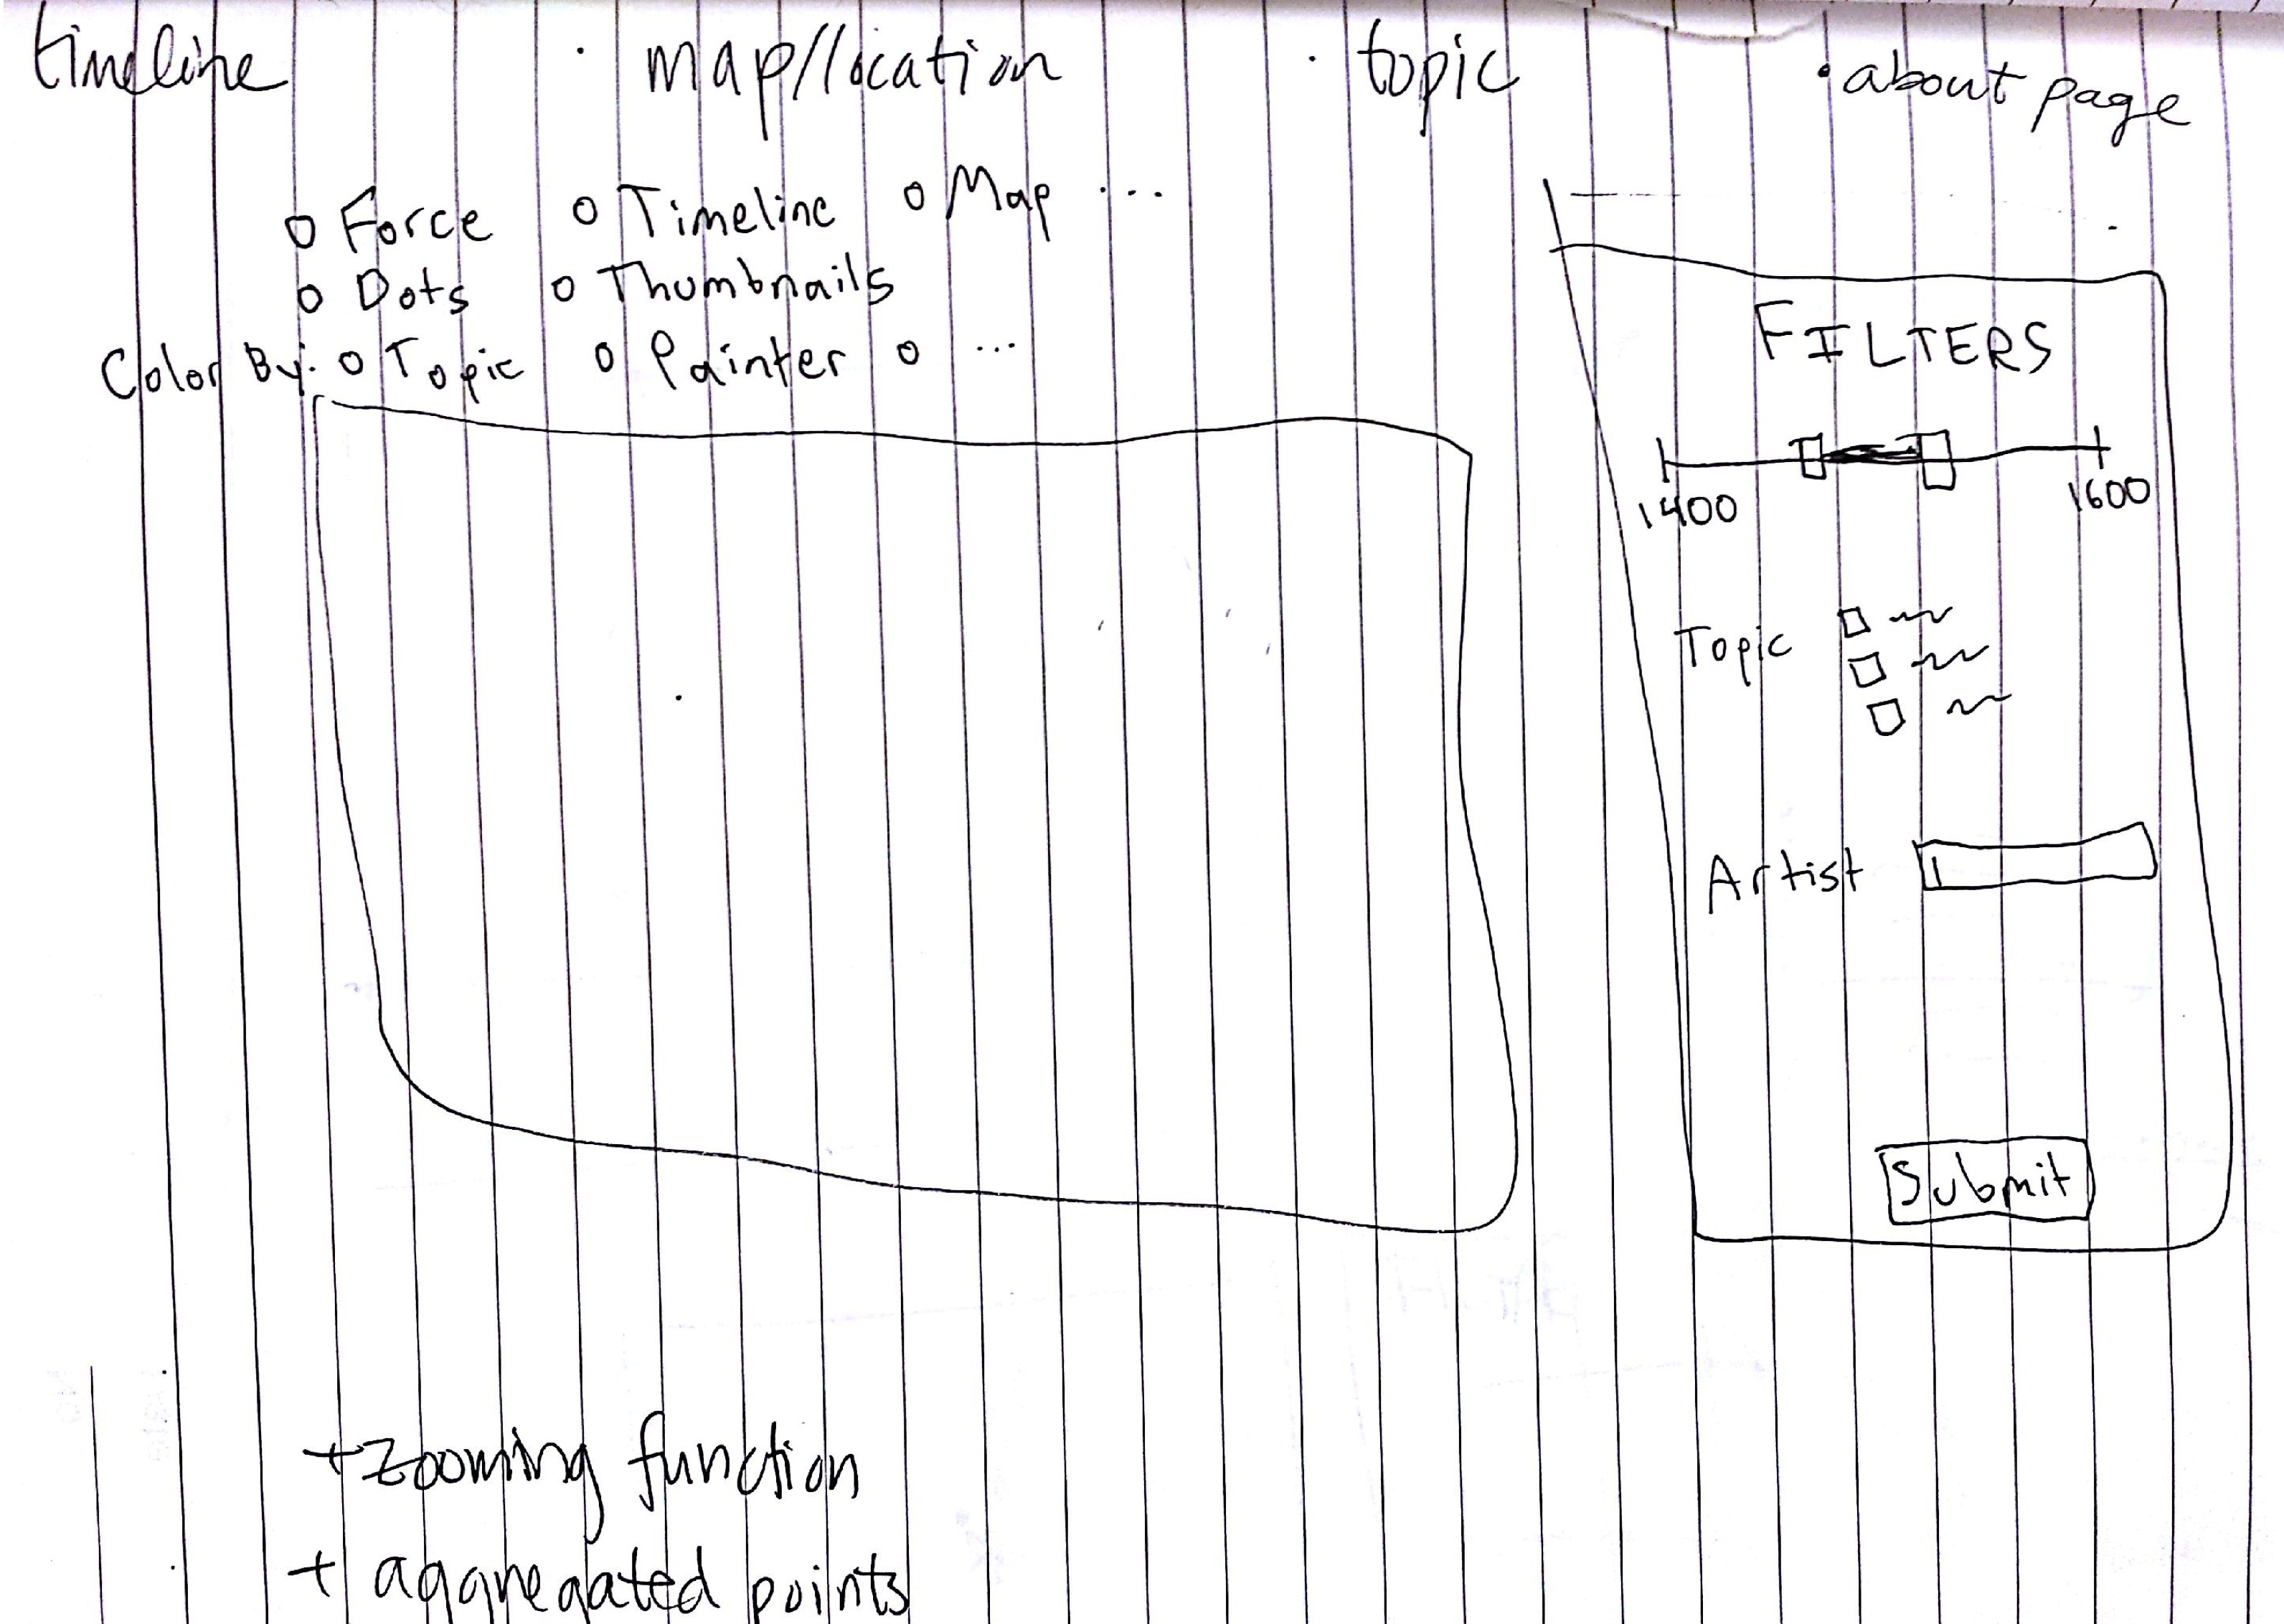 timeline · map/location · topic · about page
o Force o Timeline o Map ...
o Dots o Thumbnails
Color By: o Topic o Painter o ...
FILTERS
1400 1600
Topic
Artist
Submit
+ Zooming function
+ aggregated points